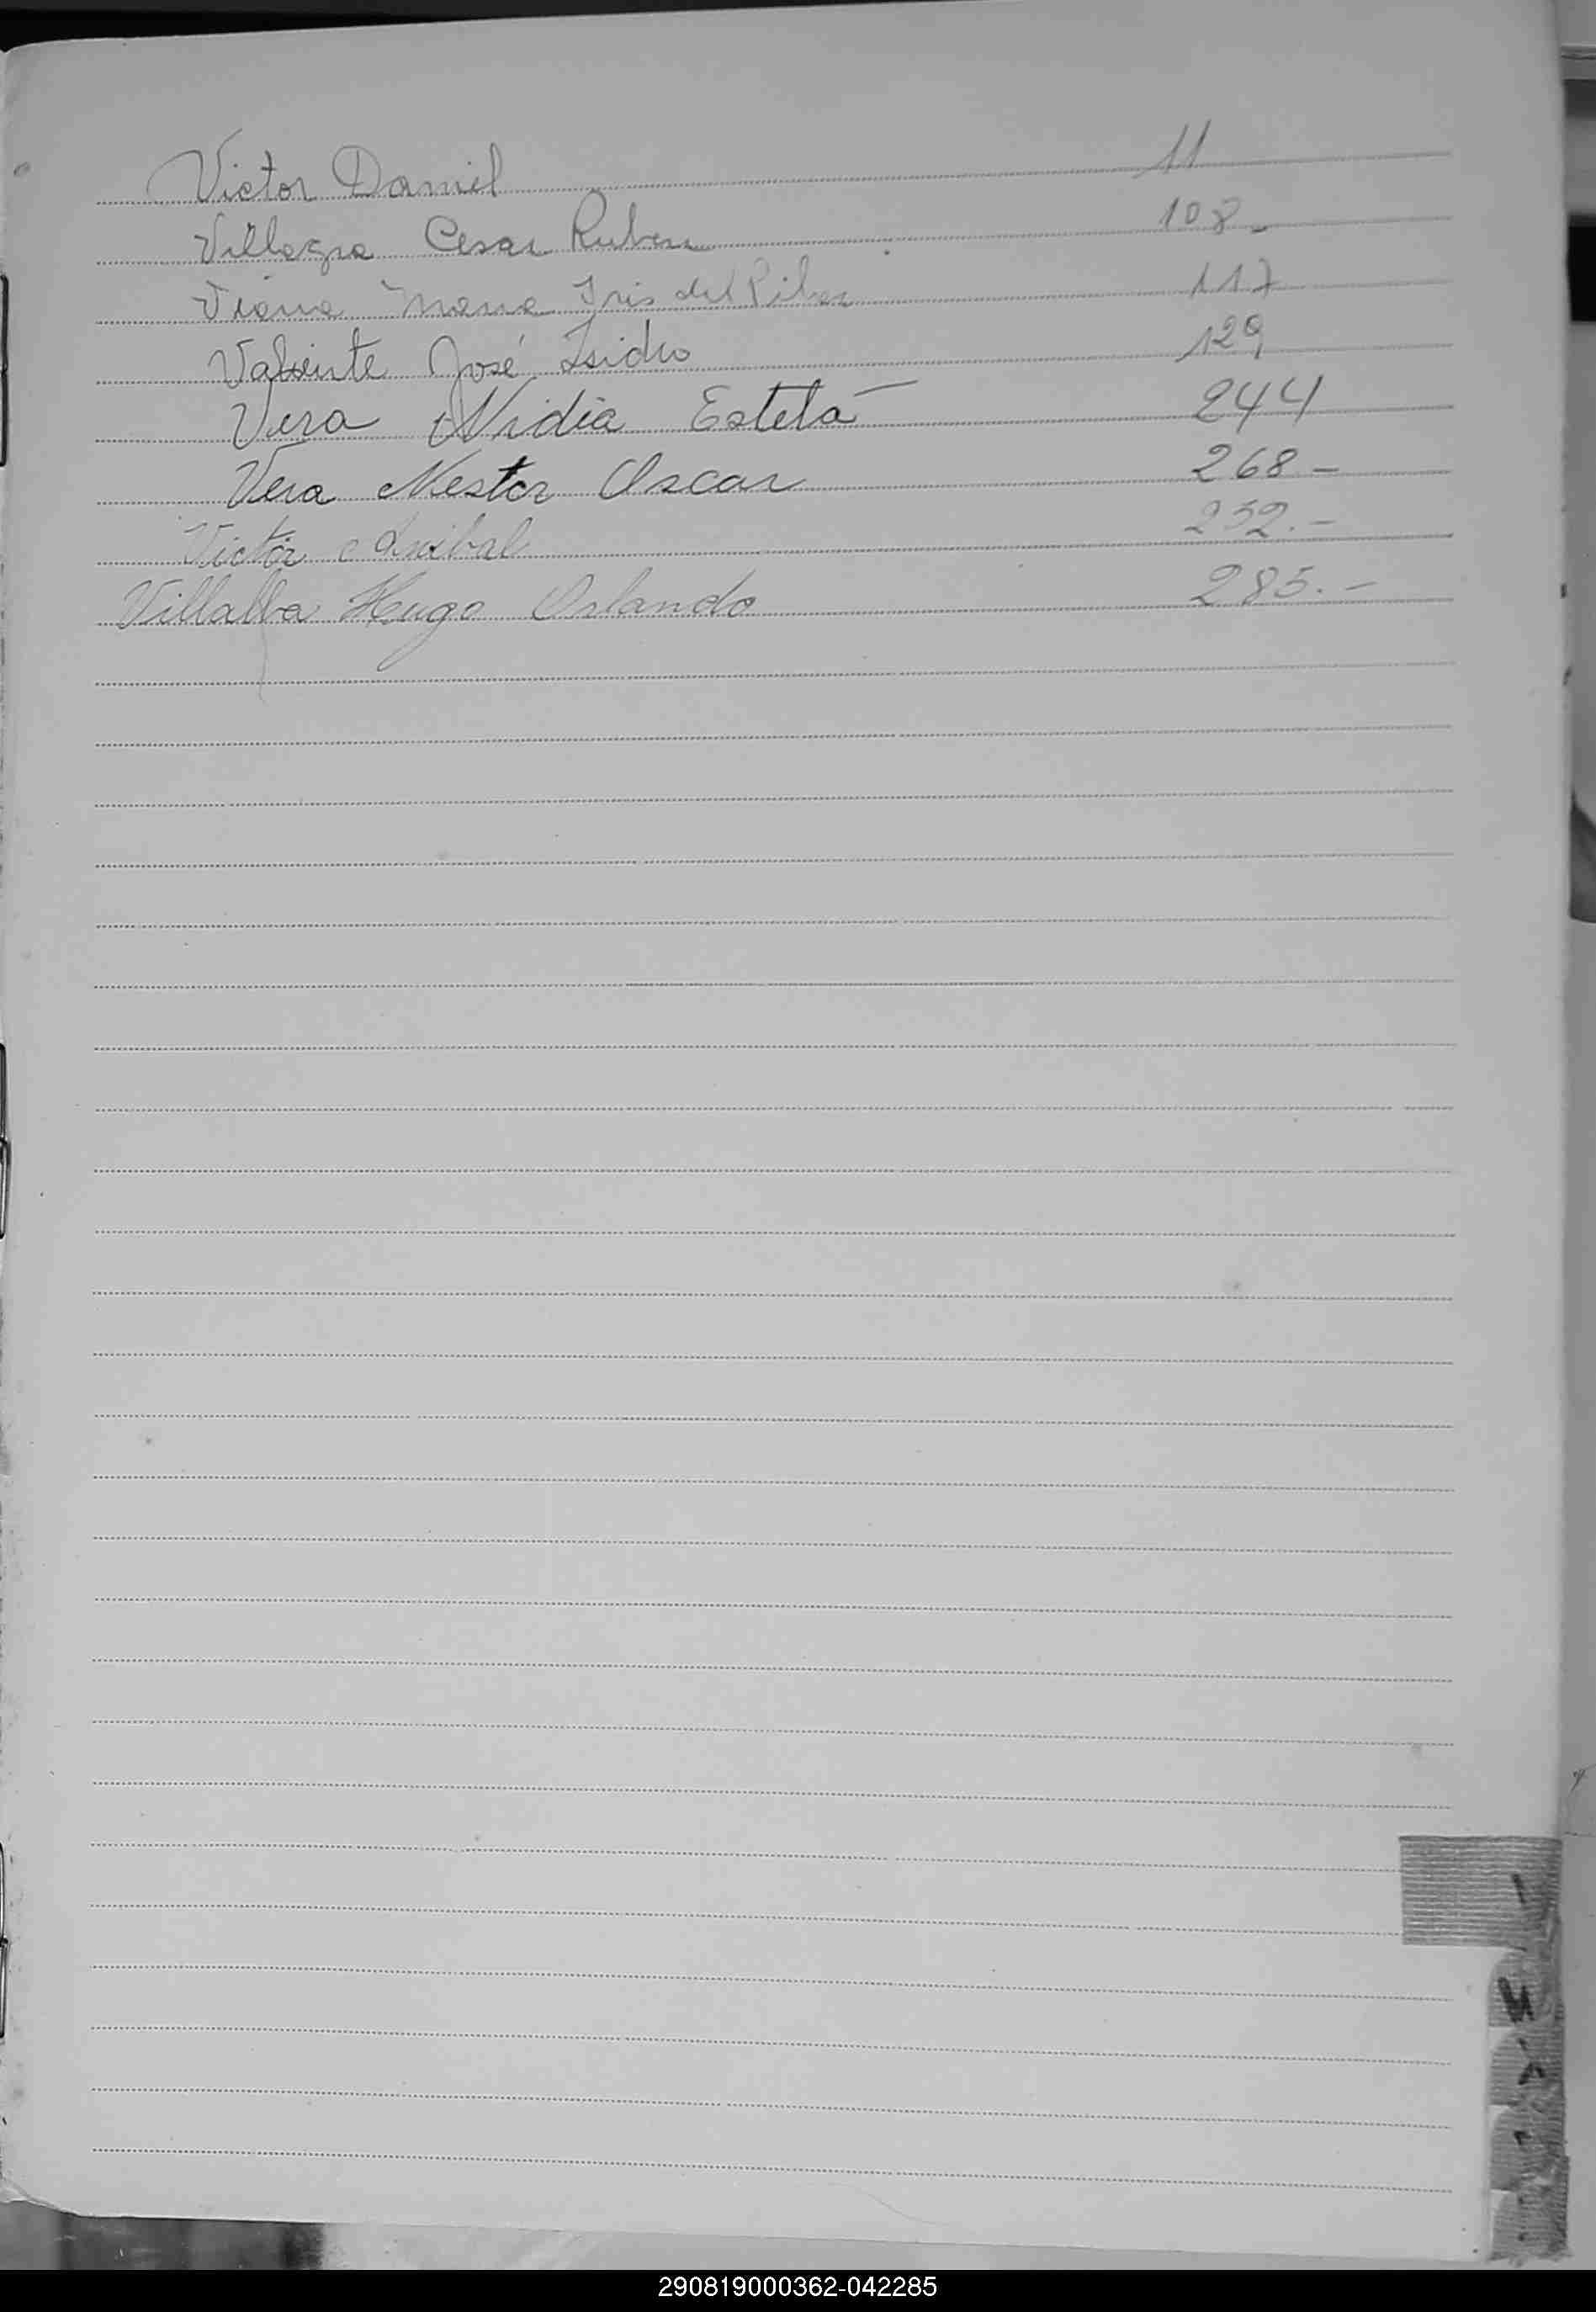 Victor Daniel 11
Villagra Cesar Ruben 108-
Viana Maria Iris del Pilar 117
Valiente José Isidro 129
Vera Nidia Estela 244
Vera Nestor Oscar 268-
Victor Anibal 232.-
Villalba Hugo Orlando 285.-
290819000362-042285